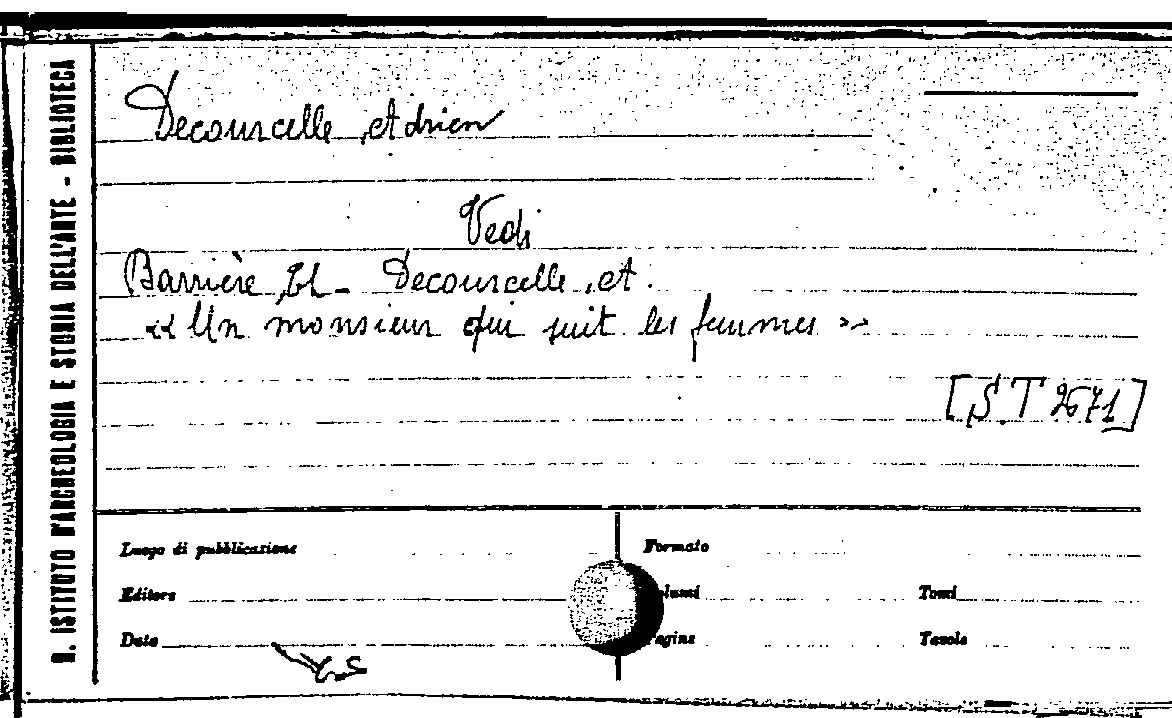 R. ISTITUTO D'ARCHEOLOGIA E STORIA DELL'ARTE - BIBLIOTECA
Decourcelle, Adrien
Vedi
Barrière, Th - Decourcelle, A.
« Un monsieur qui suit les femmes »
[S.T 2671]
Luogo di pubblicazione
Formato
Editore
Volumi
Tomi
Data
Pagine
Tavole